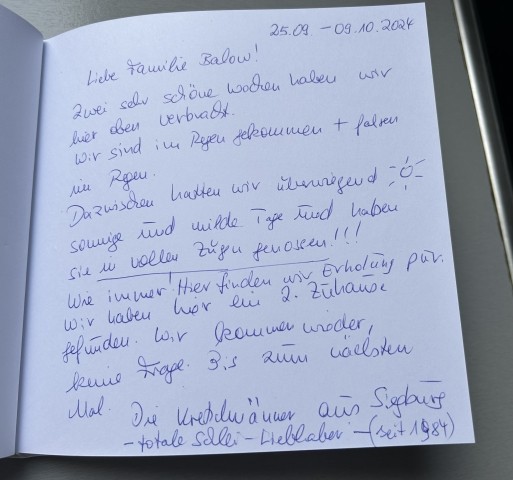 25.09. - 09.10.2024
Liebe Familie Balow!
Zwei sehr schöne Wochen haben wir
hier oben verbracht.
Wir sind im Regen gekommen + fahren
im Regen.
Dazwischen hatten wir überwiegend
sonnige und milde Tage und haben
sie in vollen Zügen genossen!!!
Wie immer! Hier finden wir Erholung pur.
Wir haben hier ein 2. Zuhause
gefunden. Wir kommen wieder,
keine Frage. Bis zum nächsten
Mal. Die Kretschmänner aus Siegburg
- totale Schlei-Liebhaber - (seit 1984)